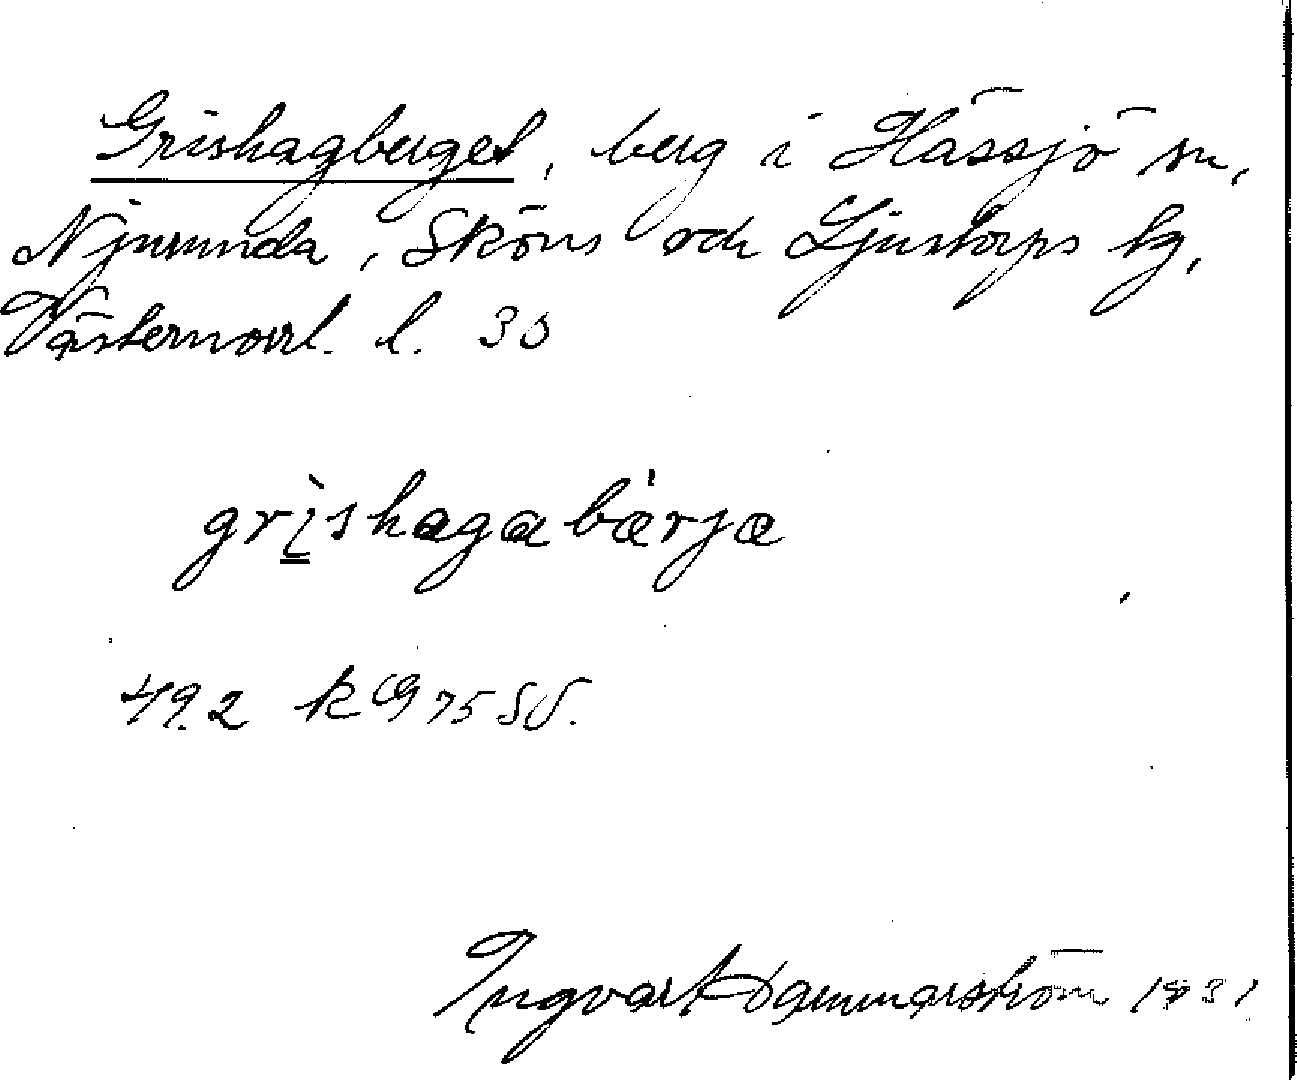 Grishagberget, berg i Hässjö sn,
Njurunda, Sköns och Ljustorps tg,
Västernorrl. l. 30
grìshagabärjæ
49.2 k G 75 SV.
Ingvar Hammarström 1931